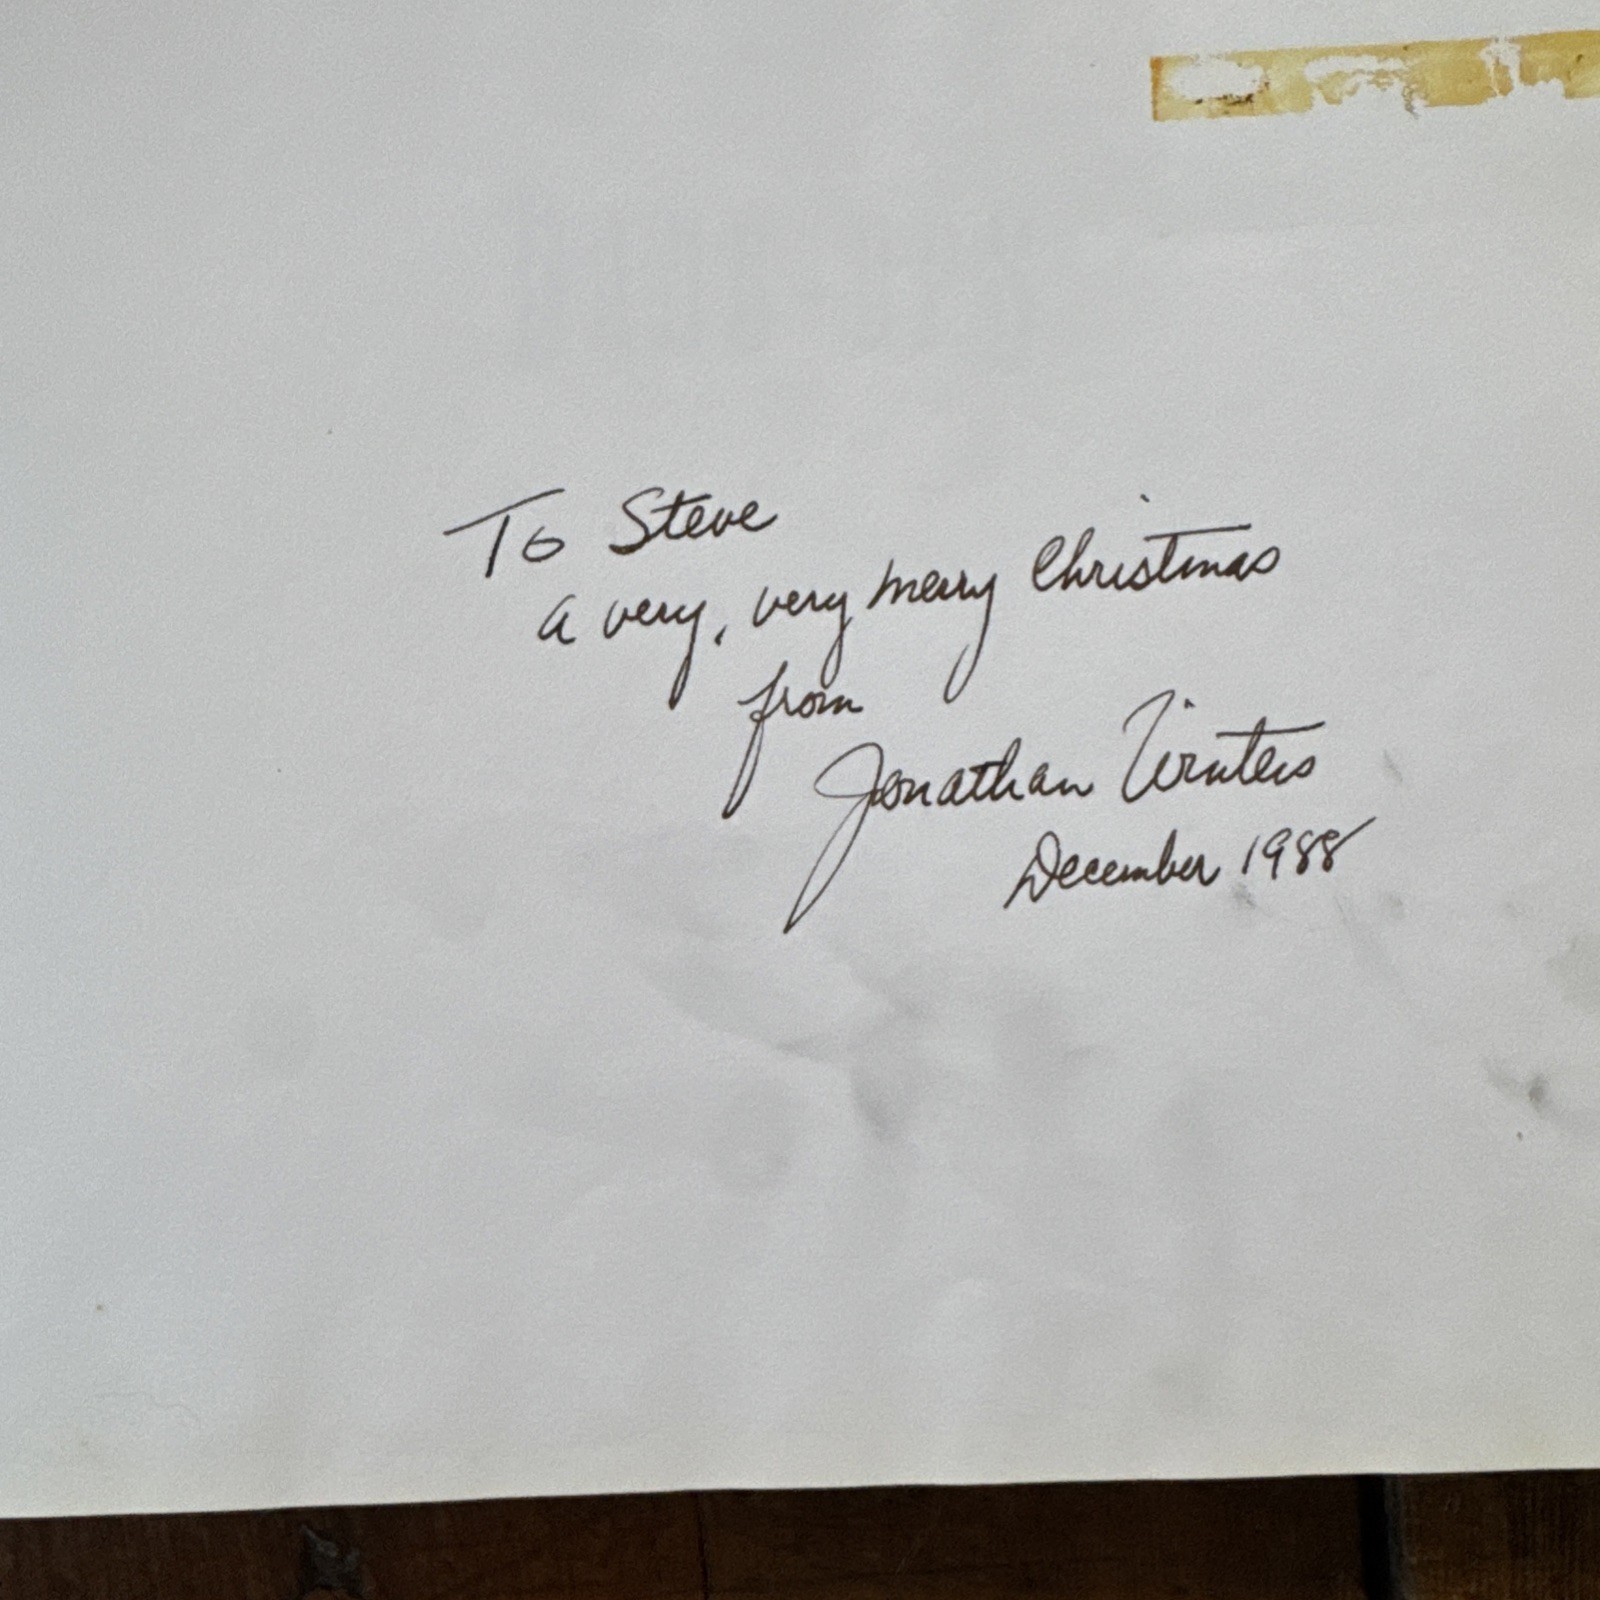 To Steve
a very, very merry Christmas
from
Jonathan Winters
December 1988